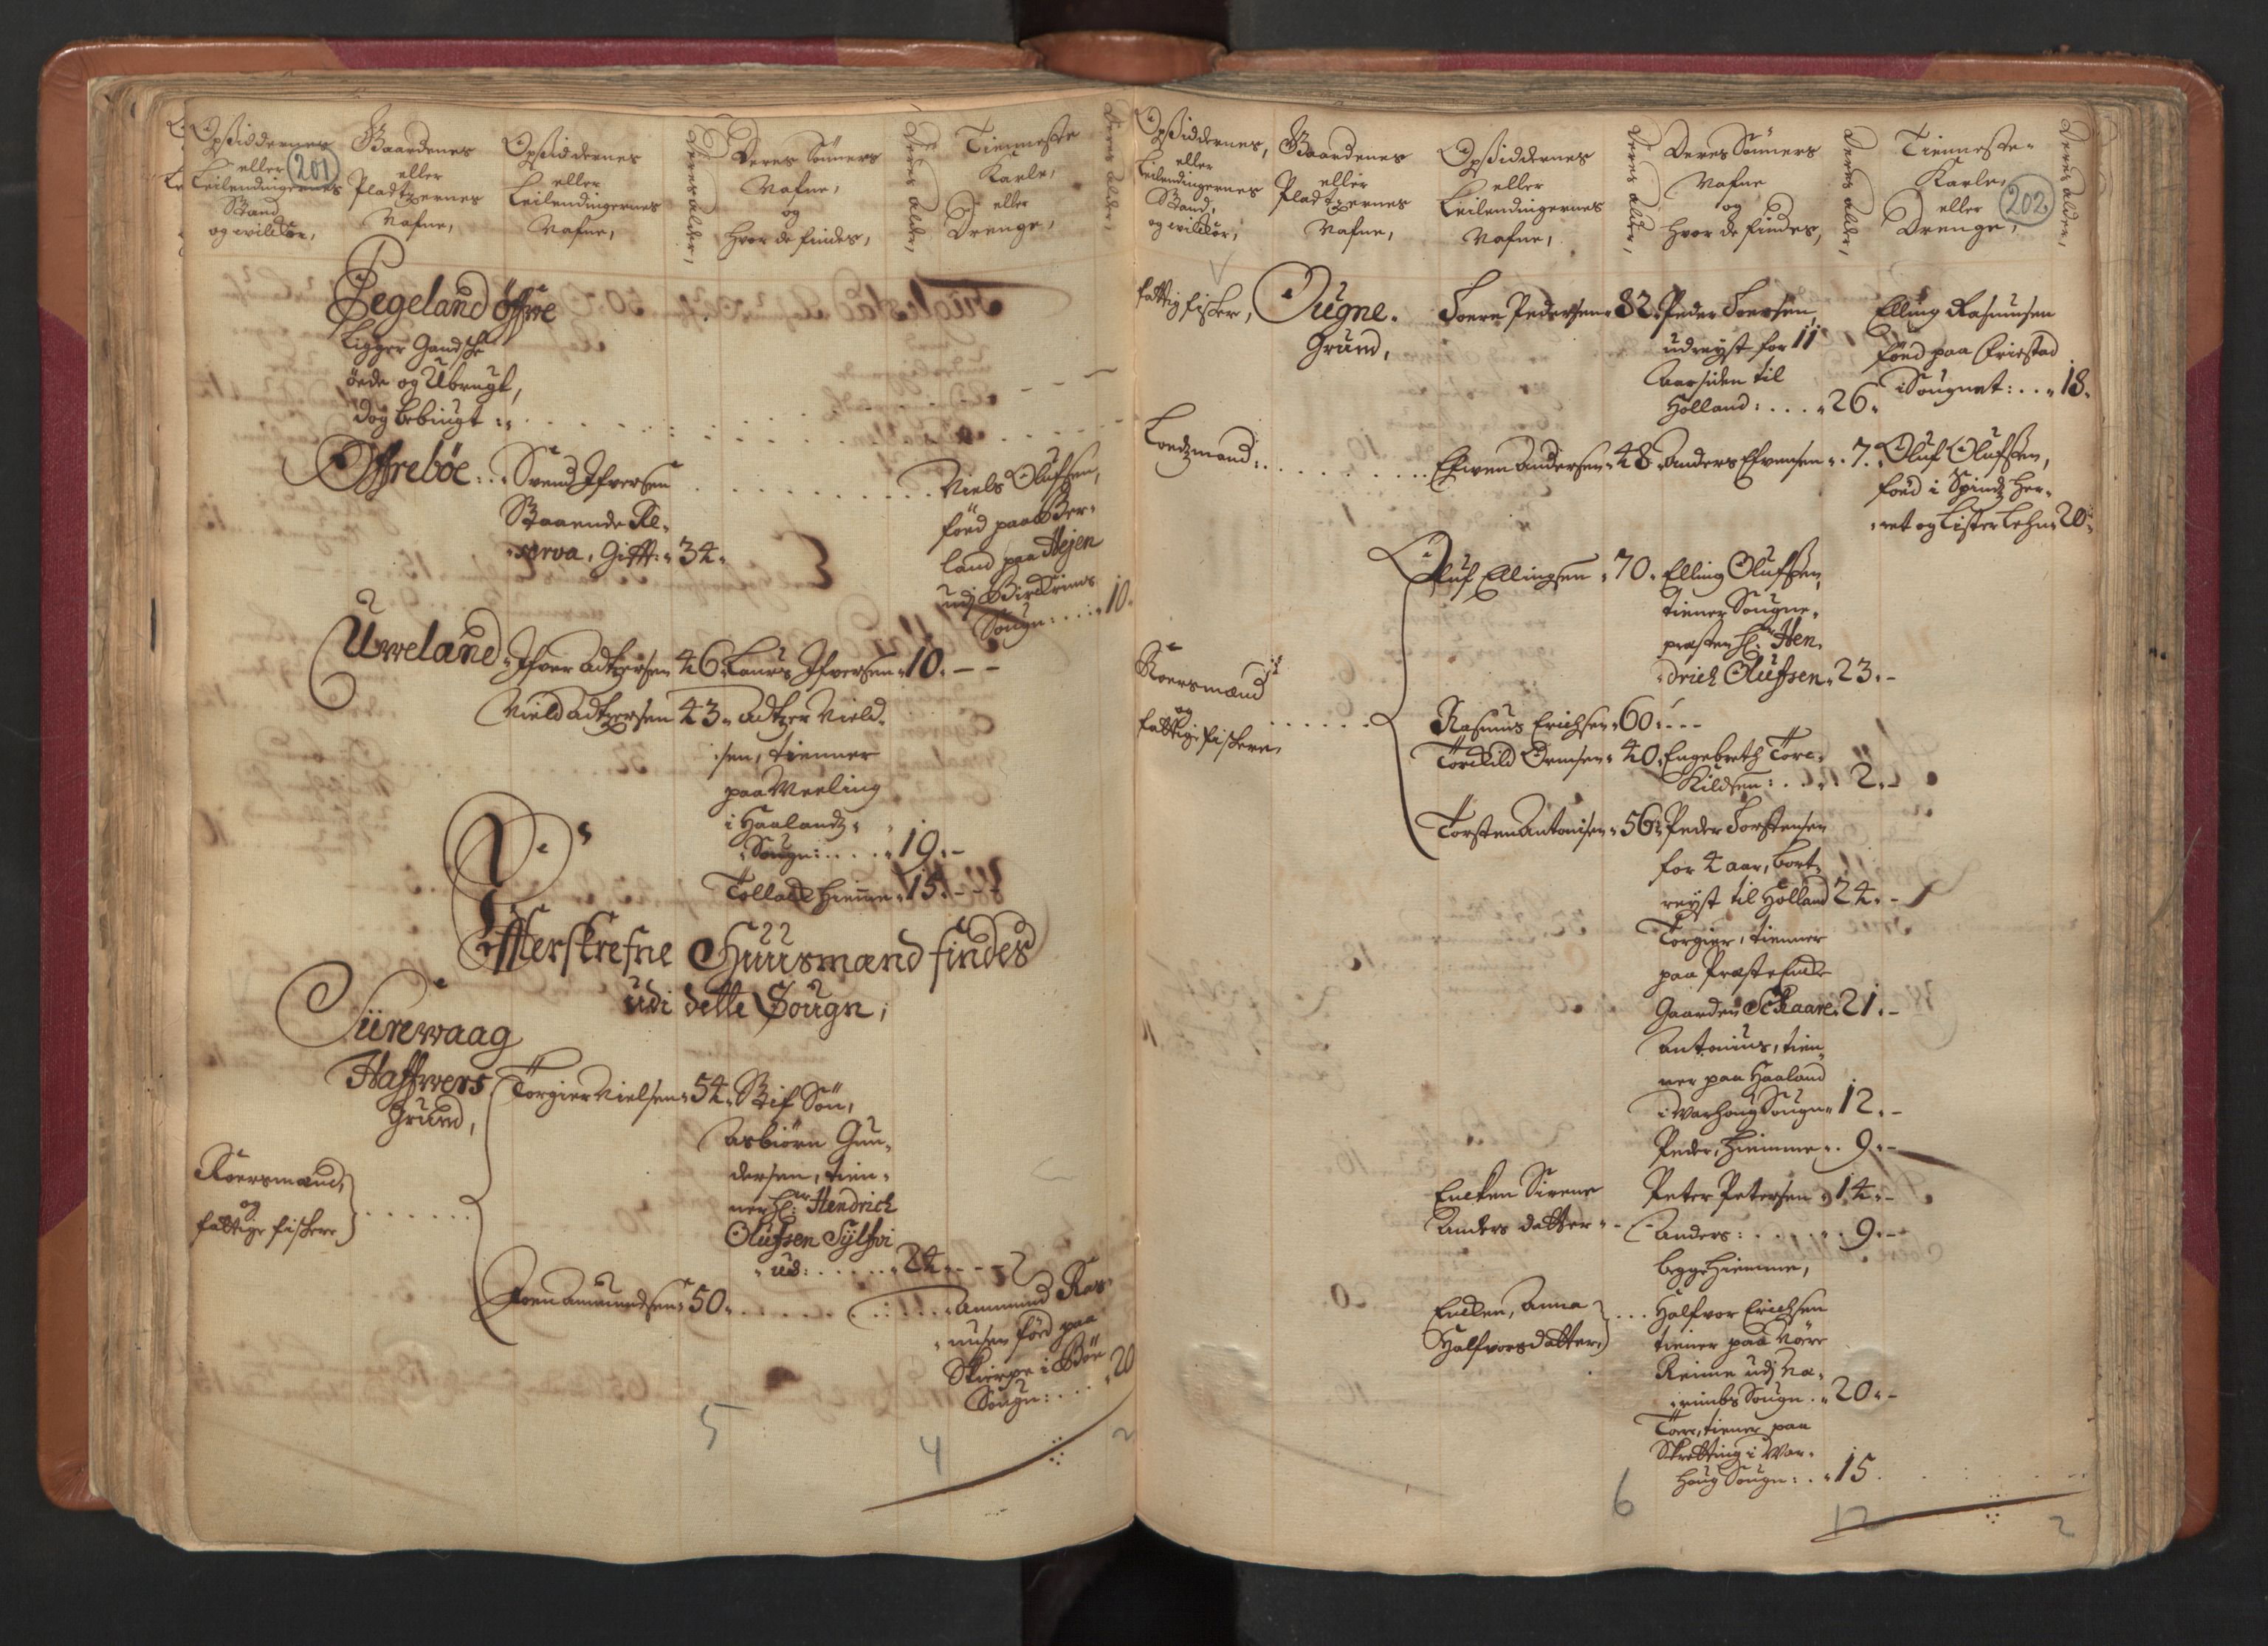 201
Opsiddernes
eller
Leilendingernes
Stand
og willkor,
Gaardenes
eller
Pladtzernes
Nafne,
Opsiddernes
eller
Leilendingernes
Nafne,
Deres alder,
Deres Sönners
Nafne,
og
Hvor de findes,
Deres alder,
Tienneste
Karle,
eller
Drenge,
Deres alder,
Egeland öffre
Ligger Gandsche
öede og Ubrugt,
dog bebiugt :
Offrebøe : Svend Ifversen
Staaende Re-
serva, Gifft : 34.
Niels Olufsen,
föed paa Ber-
land paa Hejen
udj Birckrims
Sougn : 10.
Uweland. Ifver Adtzersen 46. Laurs Ifversen. 10.
Nield Adtzersen 43. Adtzer Nield-
sen, tienner
paa Weeling
i Haalandz
Sougn : 19.
Tollack hiemme. 15.
Effterskrefne Huusmænd findes
udi dette Sougn,
Siirewaag
Haffwers
Grund,
Roersmænd,
og
fattige fischere
Torgier Nielsen. 54. Stif Sön,
Asbiörn Gun-
dersen, tien-
ner Hr. Hendrich
Olufsen Sylfvi
us : 24.
Joen Amundsen. 50.
Ammund Ras-
musen föed paa
Skierpe i Böe
Sougn : 20
5
4
2
202
Opsiddernes,
eller
Leilendingernes
Stand,
og willkor,
Gaardenes
eller
Pladtzernes
Nafne,
Opsiddernes
eller
Leilendingernes
Nafne,
Deres alder,
Deres Sönners
Nafne
og
Hvor de findes,
Deres alder,
Tienneste-
Karle,
eller
Drenge,
Deres alder,
fattig fischer,
Ougne-
Grund,
Soere Pedersen. 82. Peder Soersen,
udreyst for 11
Aar siden til
Holland : 26.
Elling Rasmusen
föed paa Friestad
i Sougnet : 18.
Loedzmand :
Efwen Andersen. 48. Anders Efvensen. 7.
Oluf Olufssen,
foed i Spindz Her-
ret og Lister Lehn. 20.
Roersmænd
og
fattige fischere,
Oluf Ellingsen. 70. Elling Olufssen,
tiener Sougne-
præsten Hr. Hen-
drich Olufsen. 23.
Rasmus Erichsen. 60.
Torckild Ormsen. 40. Engebreth Torc-
kildsen : 2.
Torsten Antonisen. 56. Peder Torstensen
for 4 aar, bort-
reyst til Holland 24.
Torgier, tienner
paa Præste Enche
Gaarden Schaare. 21.
Antonius, tien-
ner paa Haaland
i Warhoug Sougn. 12.
Peder, hiemme. 9.
Encken Sirene
Anders datter.
Peter Petersen 14.
Anders : 9.
begge hiemme,
Encken, Anna
Halfvorsdatter,
Halfvor Erichsen
tiener paa Nörre
Reime udj Na-
rimbs Sougn. 20.
Torr, tiener paa
Skretting i War-
houg Sougn : 15.
6
12
2